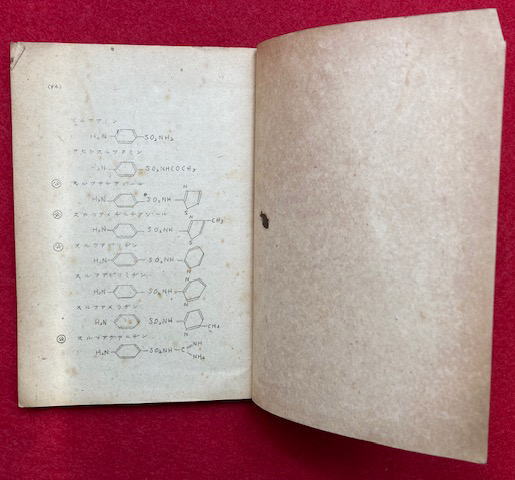 スルファミン
H₂N SO₂NH₂
H₂N SO₂NHCOCH₃
スルファチアゾール
H₂N SO₂NH N S
スルファメチルチアゾール
H₂N SO₂NH N S CH₃
スルファピリヂン
H₂N SO₂NH N
スルファピリミヂン
H₂N SO₂NH N N
スルファメラヂン
H₂N SO₂NH N N CH₃
スルファグアニヂン
H₂N SO₂NH C NH NH₂